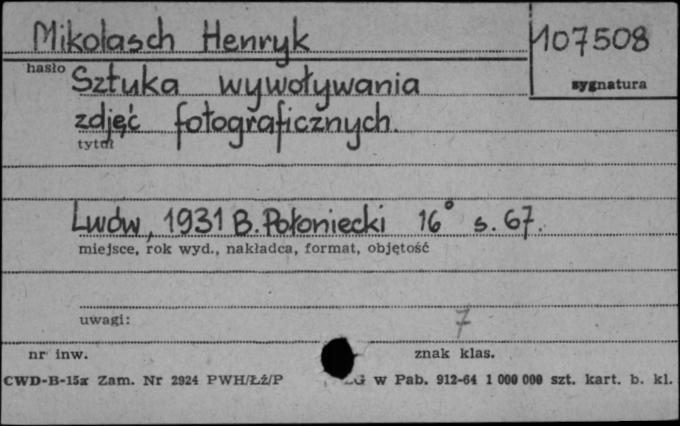 Mikolasch Henryk
107508
hasło
sygnatura
Sztuka wywoływania
zdjęć fotograficznych.
tytuł
Lwów, 1931 B. Połoniecki 16° s. 67.
miejsce, rok wyd., nakładca, format, objętość
uwagi:
7
nr inw.
znak klas.
CWD-B-15a Zam. Nr 2924 PWH/Łź/P G w Pab. 912-64 1 000 000 szt. kart. b. kl.